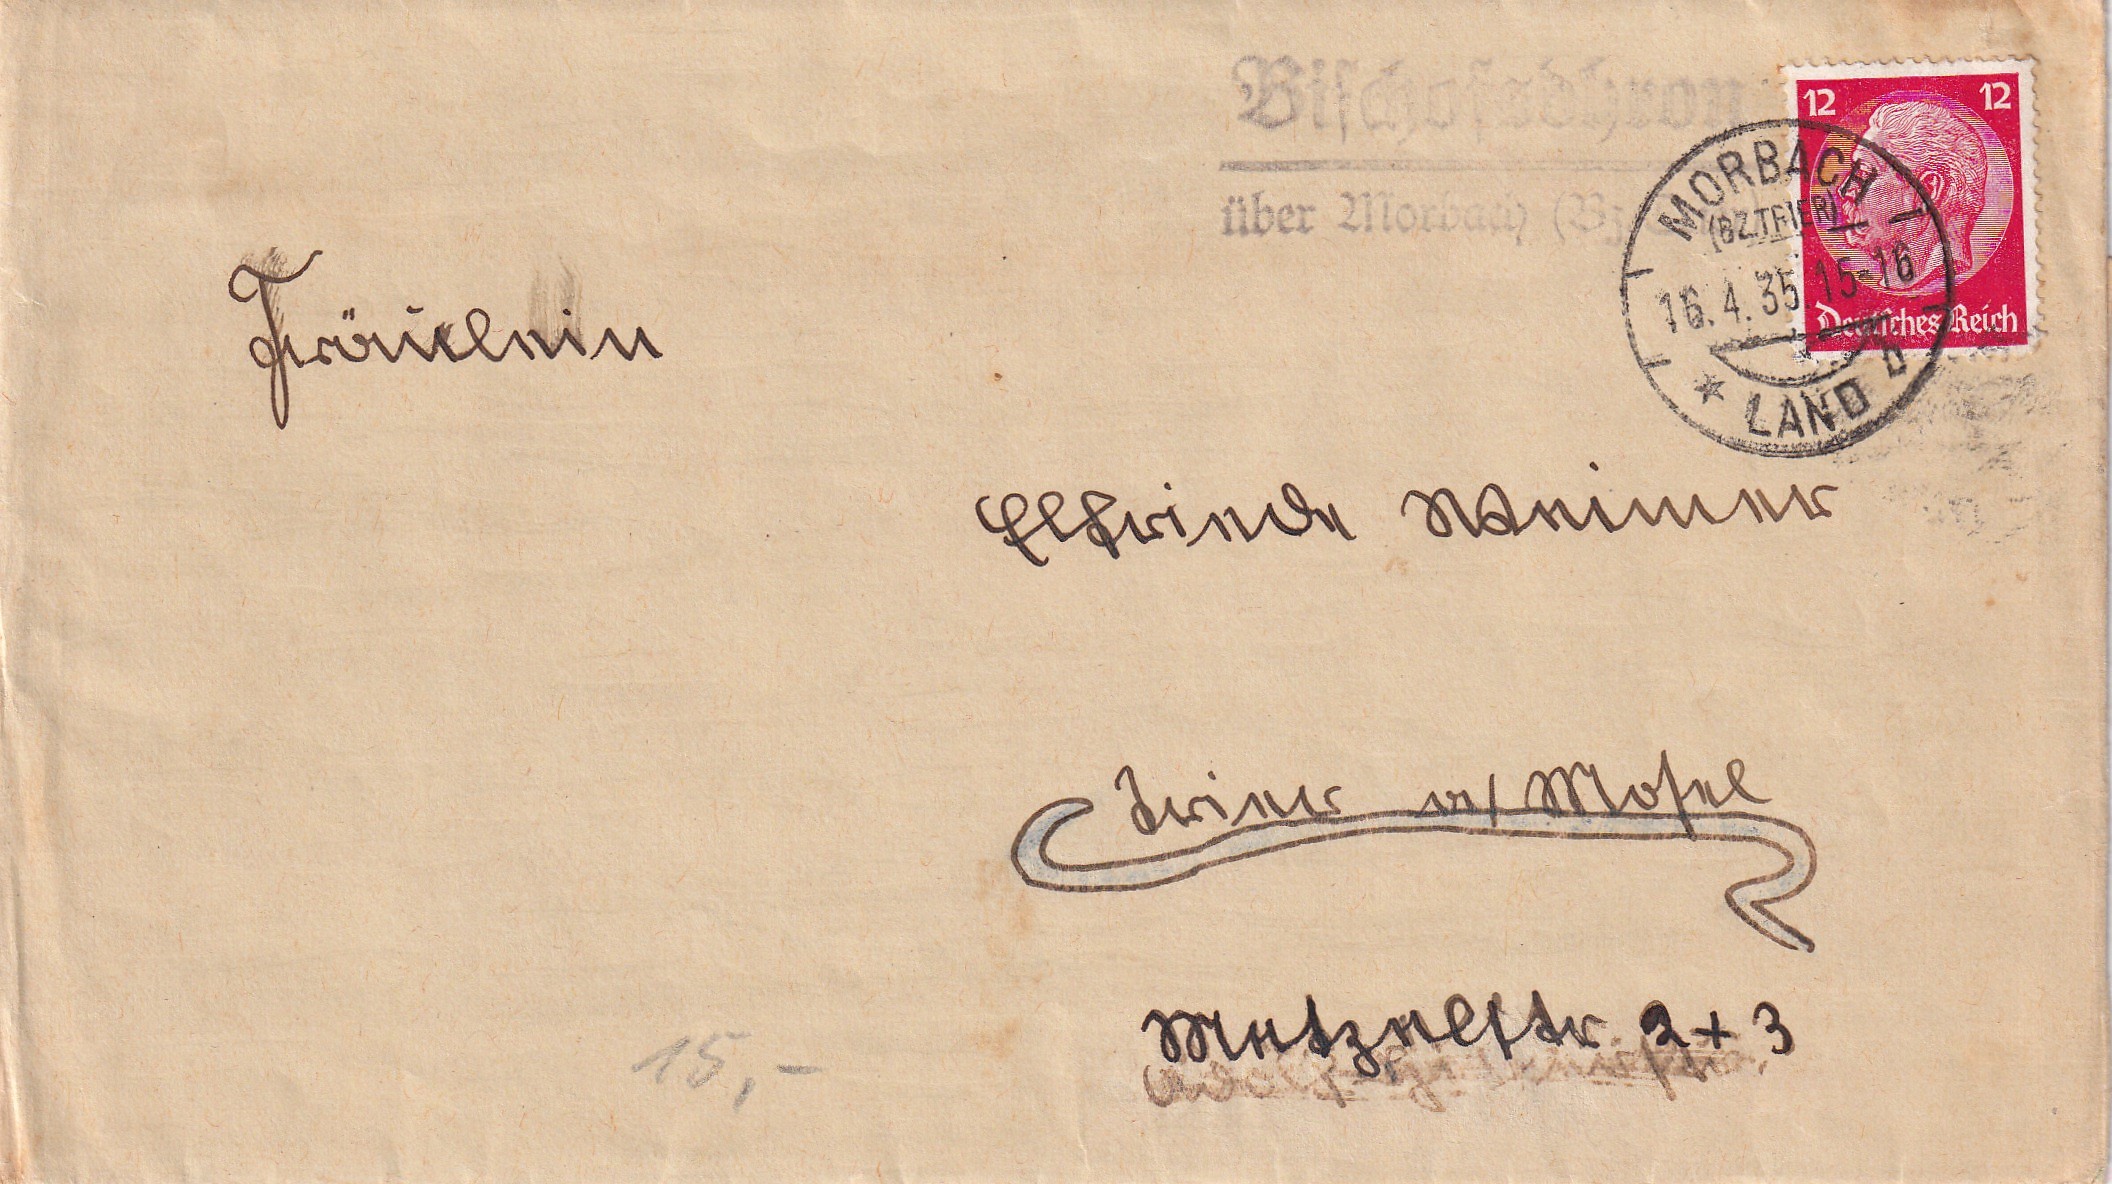 Bischofsdhron
über Morbach (Bz.
12 12
Deutsches Reich
MORBACH
(BZ. TRIER)
16.4.35.15-16
* LAND b
Fräulein
Elfriede Weimer
Trier a/Mosel
Metzelstr. 2+3
15,-